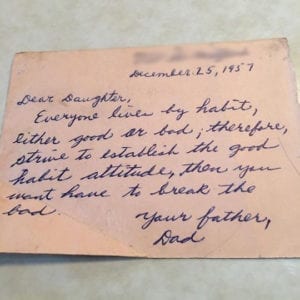 December 25, 1957
Dear Daughter,
Everyone lives by habit,
either good or bad; therefore,
strive to establish the good
habit attitude, then you
wont have to break the
bad.
Your father,
Dad